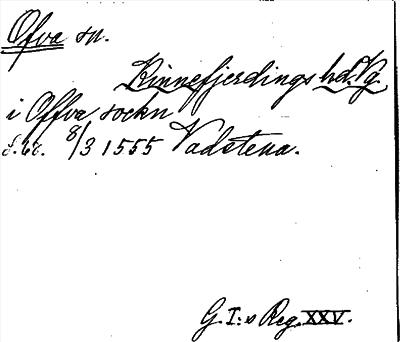 Ofva sn.
Kinnefjerdings hd. Vg.
i Offva sockn
8/3 1555 Vadstena.
G. I:s Reg. XXV.